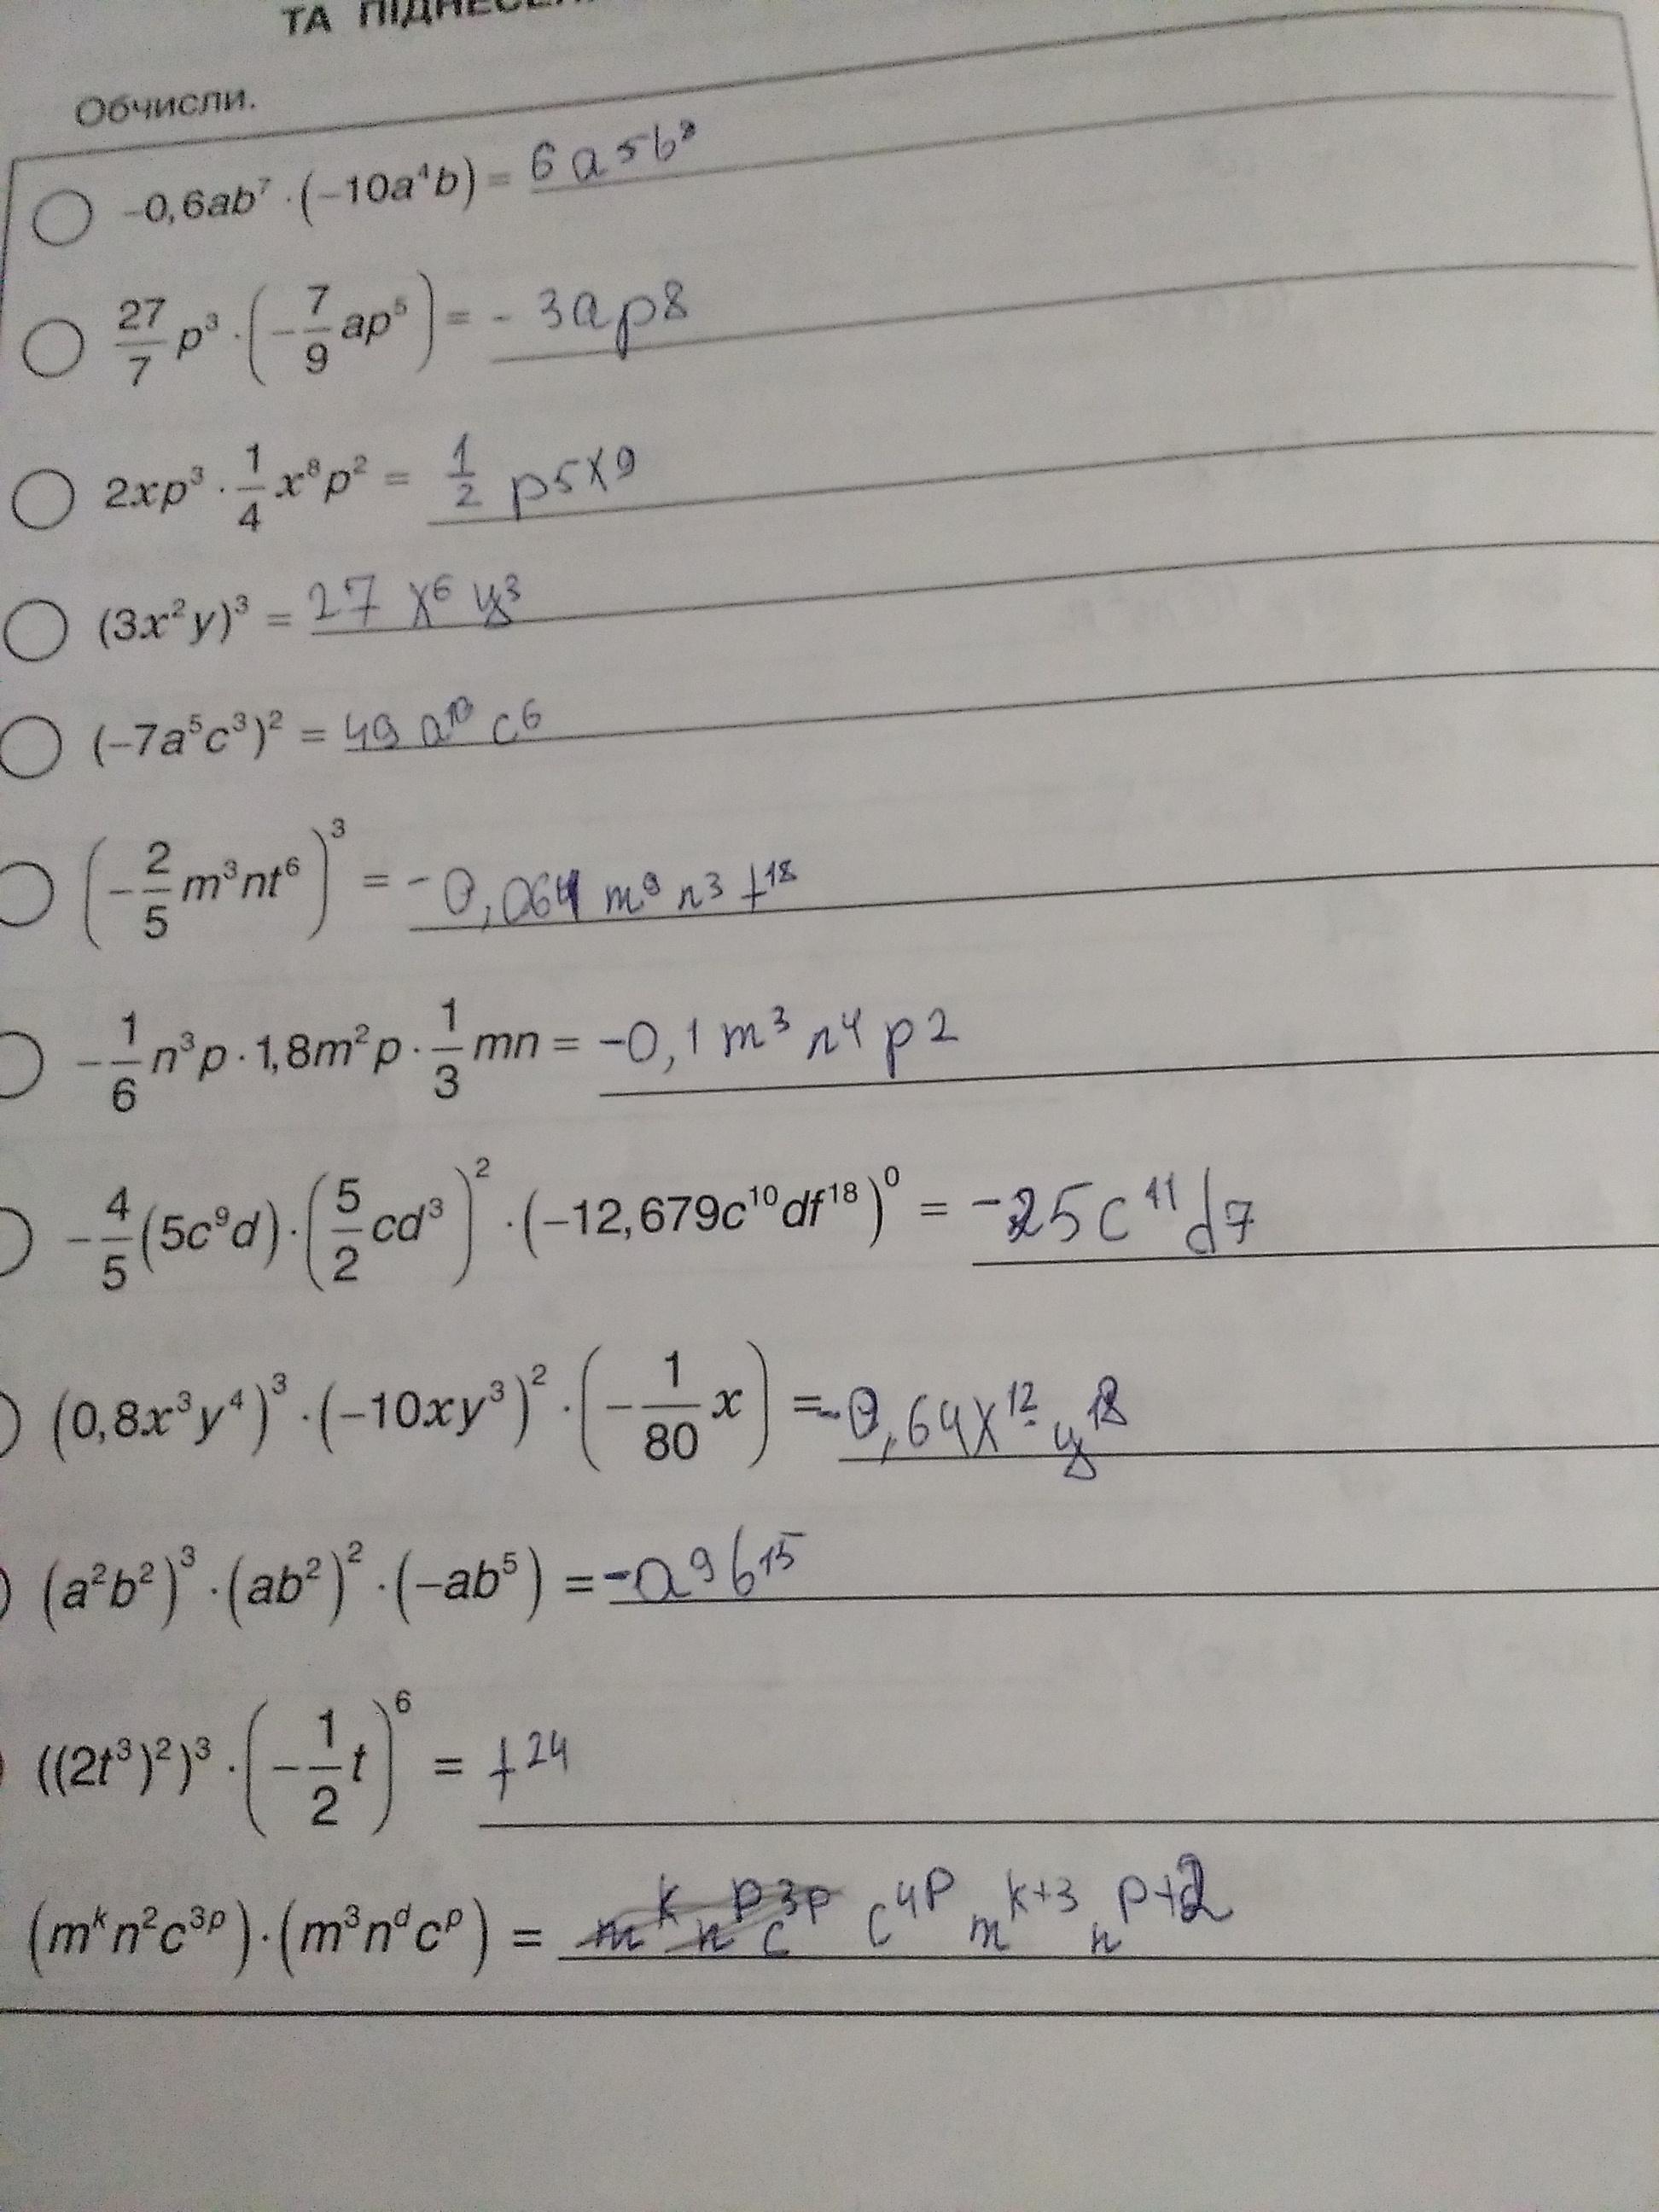 ТА ПІДНЕСЕН
Обчисли.
-0,6ab⁷ · (-10a⁴b) = 6a5b⁸
27/7 p³ · (-7/9 ap⁵) = -3ap8
2xp³ · 1/4 x⁸p² = 1/2 p5x9
(3x²y)³ = 27 x⁶ y³
(-7a⁵c³)² = 49 a¹⁰ c6
(-2/5 m³nt⁶)³ = -0,064 m⁹ n3 t¹⁸
-1/6 n³p · 1,8m²p · 1/3 mn = -0,1 m³ n⁴ p2
-4/5 (5c⁹d) · (5/2 cd³)² · (-12,679c¹⁰df¹⁸)⁰ = -25c¹¹d7
(0,8x³y⁴)³ · (-10xy³)² · (-1/80 x) = -0,64x¹² y¹⁸
(a²b²)³ · (ab²)² · (-ab⁵) = -a⁹b¹⁵
((2t³)²)³ · (-1/2 t)⁶ = t²⁴
(mᵏn²c³ᵖ) · (m³nᵈcᵖ) = c⁴ᴾ mᵏ⁺³ nᴾ⁺²